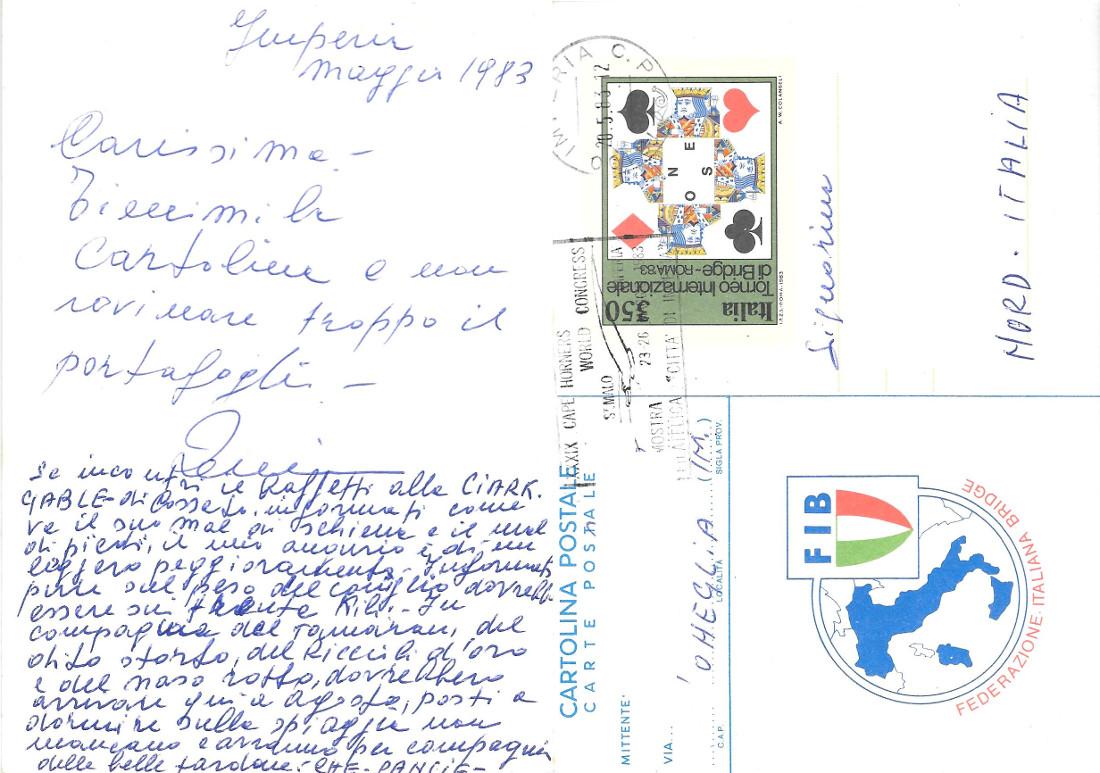 Imperia
maggio 1983
Carissima -
Eccimi la
Cartolina e non
rovinare troppo il
portafogli -
Se incontri il Raffetti alla CLARK.
GABLE - di Cosseto, informati come
va il suo mal di schiena e il mal
di piedi, il mio augurio è di un
leggero peggioramento - Informati
pure sul peso del coniglio dovrebbe
essere sui trenta Kili. In
compagnia del Tamarau, del
dito storto, del Riccioli d'oro
e del naso rotto, dovrebbero
arrivare qui a Agosto, posti a
dormire sulla spiaggia non
mancano e avranno per compagnia
delle belle tardone. CHE PANCIE -
IMPERIA C.P.
20.5.83.12
XXXIX CAPE HORNERS
WORLD CONGRESS
ST. MALO
23-26
MOSTRA
FILATELICA "CITTA' DI
N E
O S
Italia 350
Torneo Internazionale
di Bridge - ROMA '83
I.P.Z.S. - ROMA - 1983
A. W. COLANGELI
Signorina
NORD. ITALIA
CARTOLINA POSTALE
CARTE POSTALE
MITTENTE:
VIA
ONEGLIA (IM.)
C.A.P.
LOCALITÀ
SIGLA PROV.
FIB
FEDERAZIONE ITALIANA BRIDGE